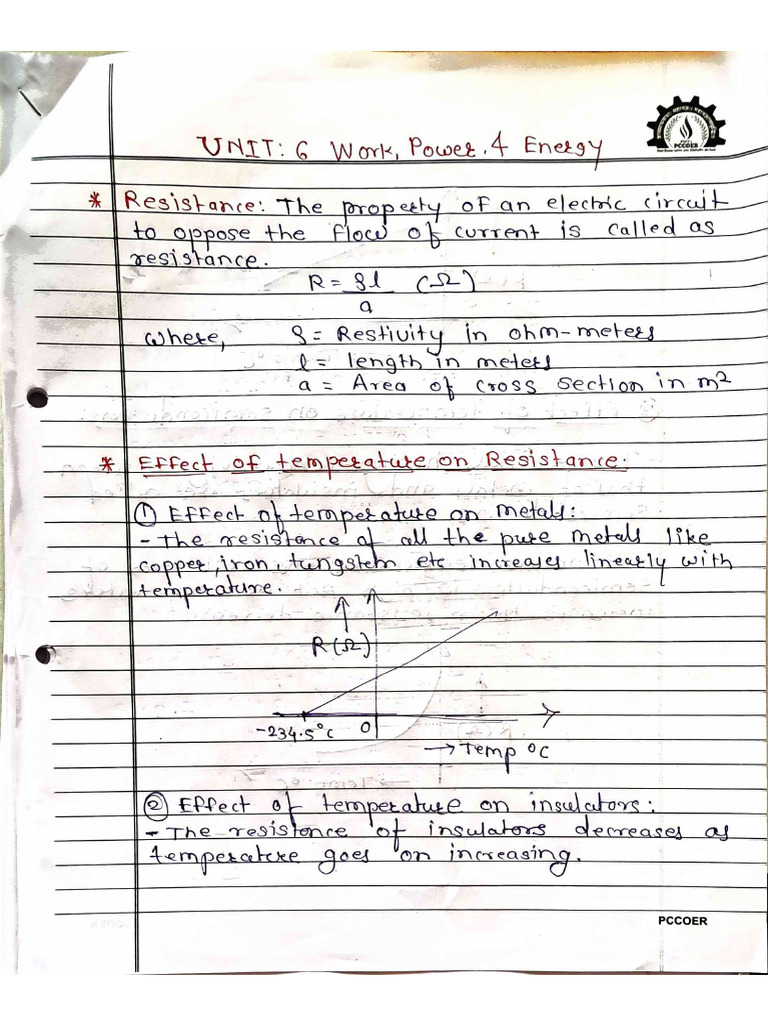 PCCOER
UNIT: 6 Work, Power. & Energy
* Resistance: The property of an electric circuit
to oppose the flow of current is called as
resistance.
R = ρl (Ω)
a
where, ρ = Restivity in ohm-meters
l = length in meters
a = Area of cross section in m²
* Effect of temperature on Resistance.
① Effect of temperature on metals:
- The resistance of all the pure metals like
copper, iron, tungstem etc increases linearly with
temperature.
R(Ω)
-234.5°C 0
→ Temp °C
② Effect of temperature on insulators:
- The resistence of insulators decreases as
temperature goes on increasing.
PCCOER